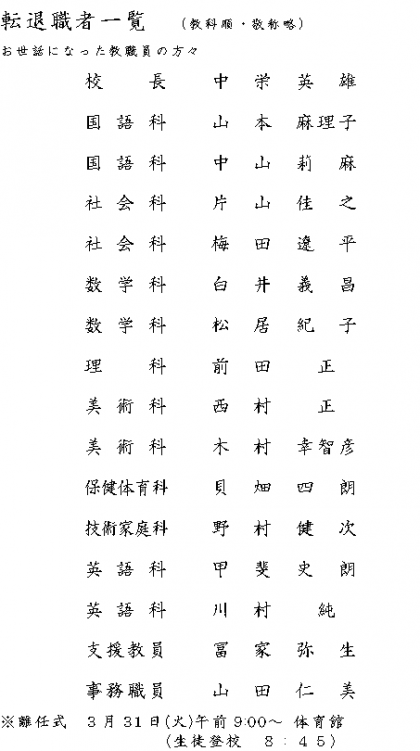 転退職者一覧 (教科順・敬称略)
お世話になった教職員の方々
校長 中栄英雄
国語科 山本麻理子
国語科 中山莉麻
社会科 片山佳之
社会科 梅田遼平
数学科 白井義昌
数学科 松居紀子
理科 前田正
美術科 西村正
美術科 木村幸智彦
保健体育科 貝畑四朗
技術家庭科 野村健次
英語科 甲斐史朗
英語科 川村純
支援教員 冨家弥生
事務職員 山田仁美
※離任式 3月31日(火)午前9:00~ 体育館
(生徒登校 8:45)